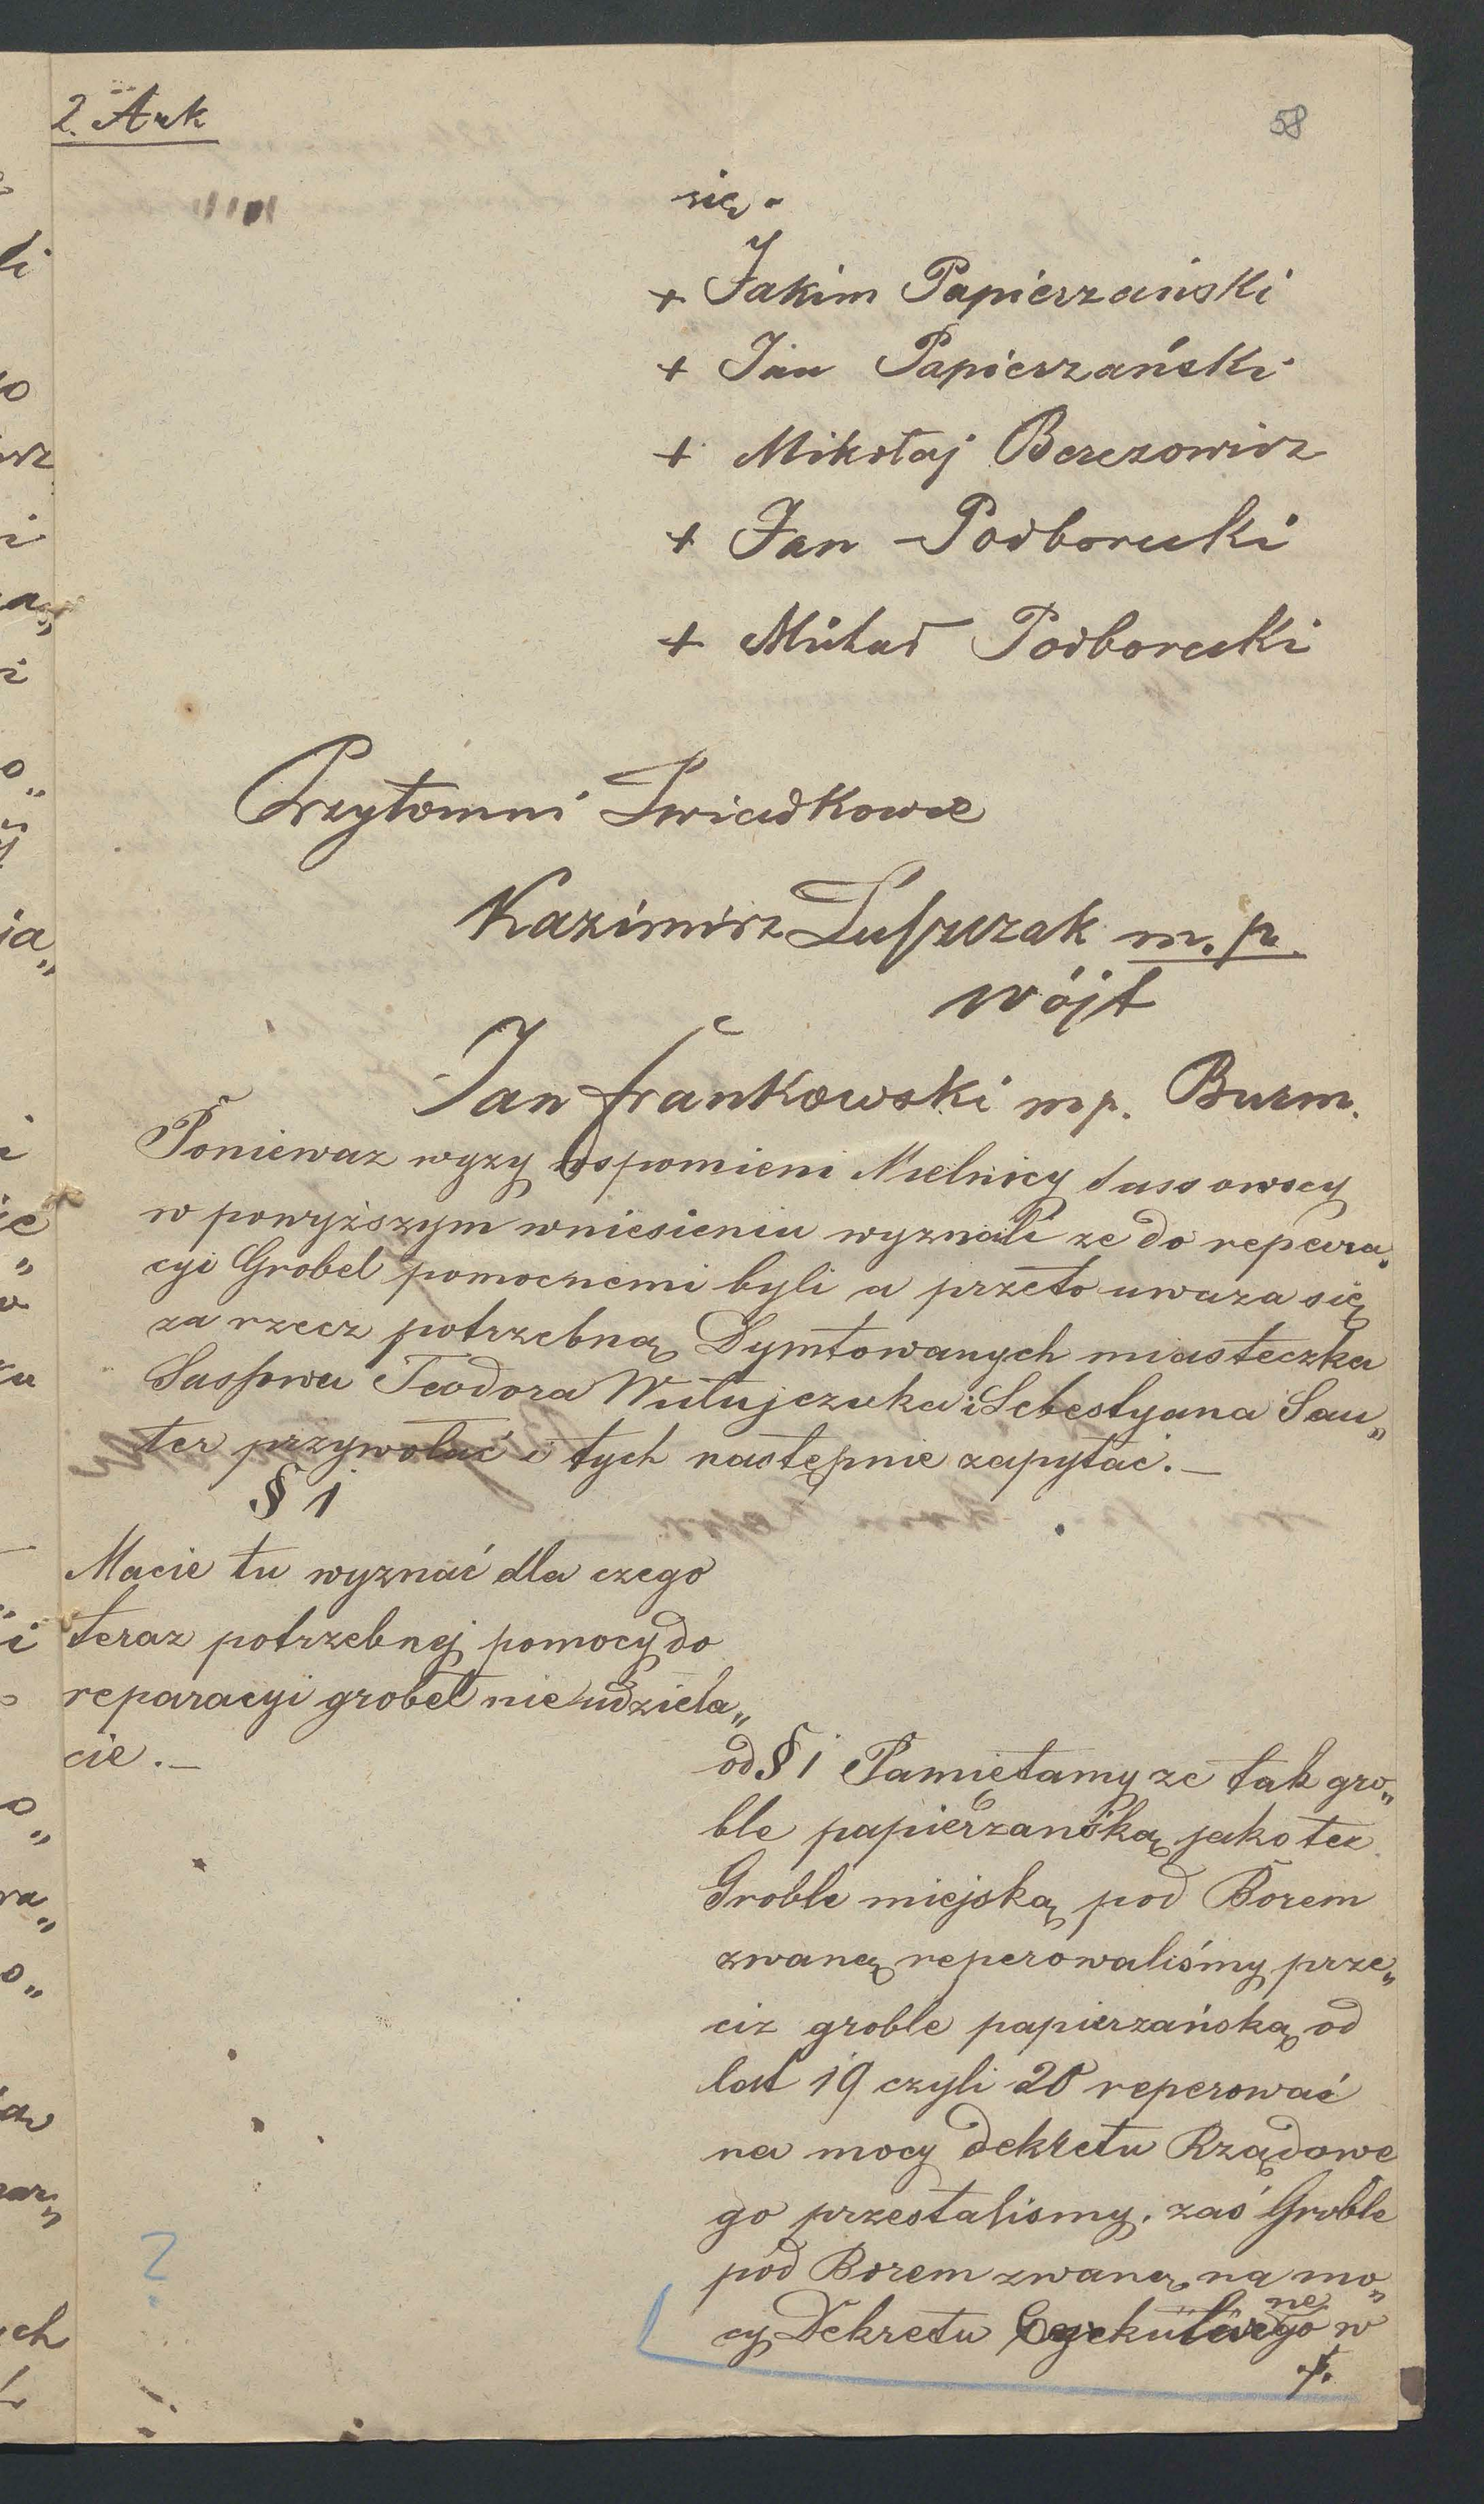 2. Ark
58
się.
+ Jakim Papierzański
+ Jan Papierzański
+ Mikołaj Berezowicz
+ Jan Podborucki
+ Michał Podborucki
Przytomni Swiadkowie
Kazimirz m. p.
wójt
Jan Frankowski mp. Burm.
Ponieważ wyzy wspomieni Mielnicy Sassowscy
w powyższym wniesieniu wyznali ze do repera„
cyi Grobel pomocnemi byli a przeto uwaza się
za rzecz potrzebną Dymtowanych miasteczka
Sassowa Teodora i Sebestyana Sau„
ter przywołać i tych następnie zapytać. —
§ 1
Macie tu wyznać dla czego
teraz potrzebnej pomocy do
reparacyi grobel nie udziela„
cie. —
od § 1 Pamiętamy ze tak gro„
ble papierzańską jako tez
Groble miejską pod Borem
zwaną reperowaliśmy prze„
ciz groble papierzańską od
lat 19 czyli 20 reperować
na mocy dekretu Rządowe
go przestaliśmy. zaś Groble
pod Borem zwaną na mo„
cy Dekretu w
?